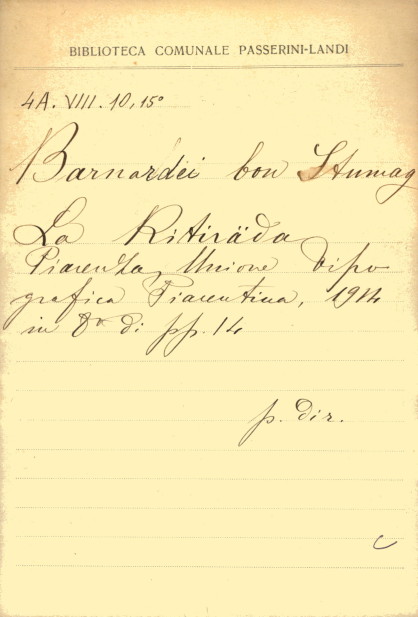 BIBLIOTECA COMUNALE PASSERINI-LANDI
4A. VIII. 10, 15°
Barnardëi bon Stumag
La Ritiräda
Piacenza, Unione Tipo
grafica Piacentina, 1914
in 8° di pp. 14
p. dir.